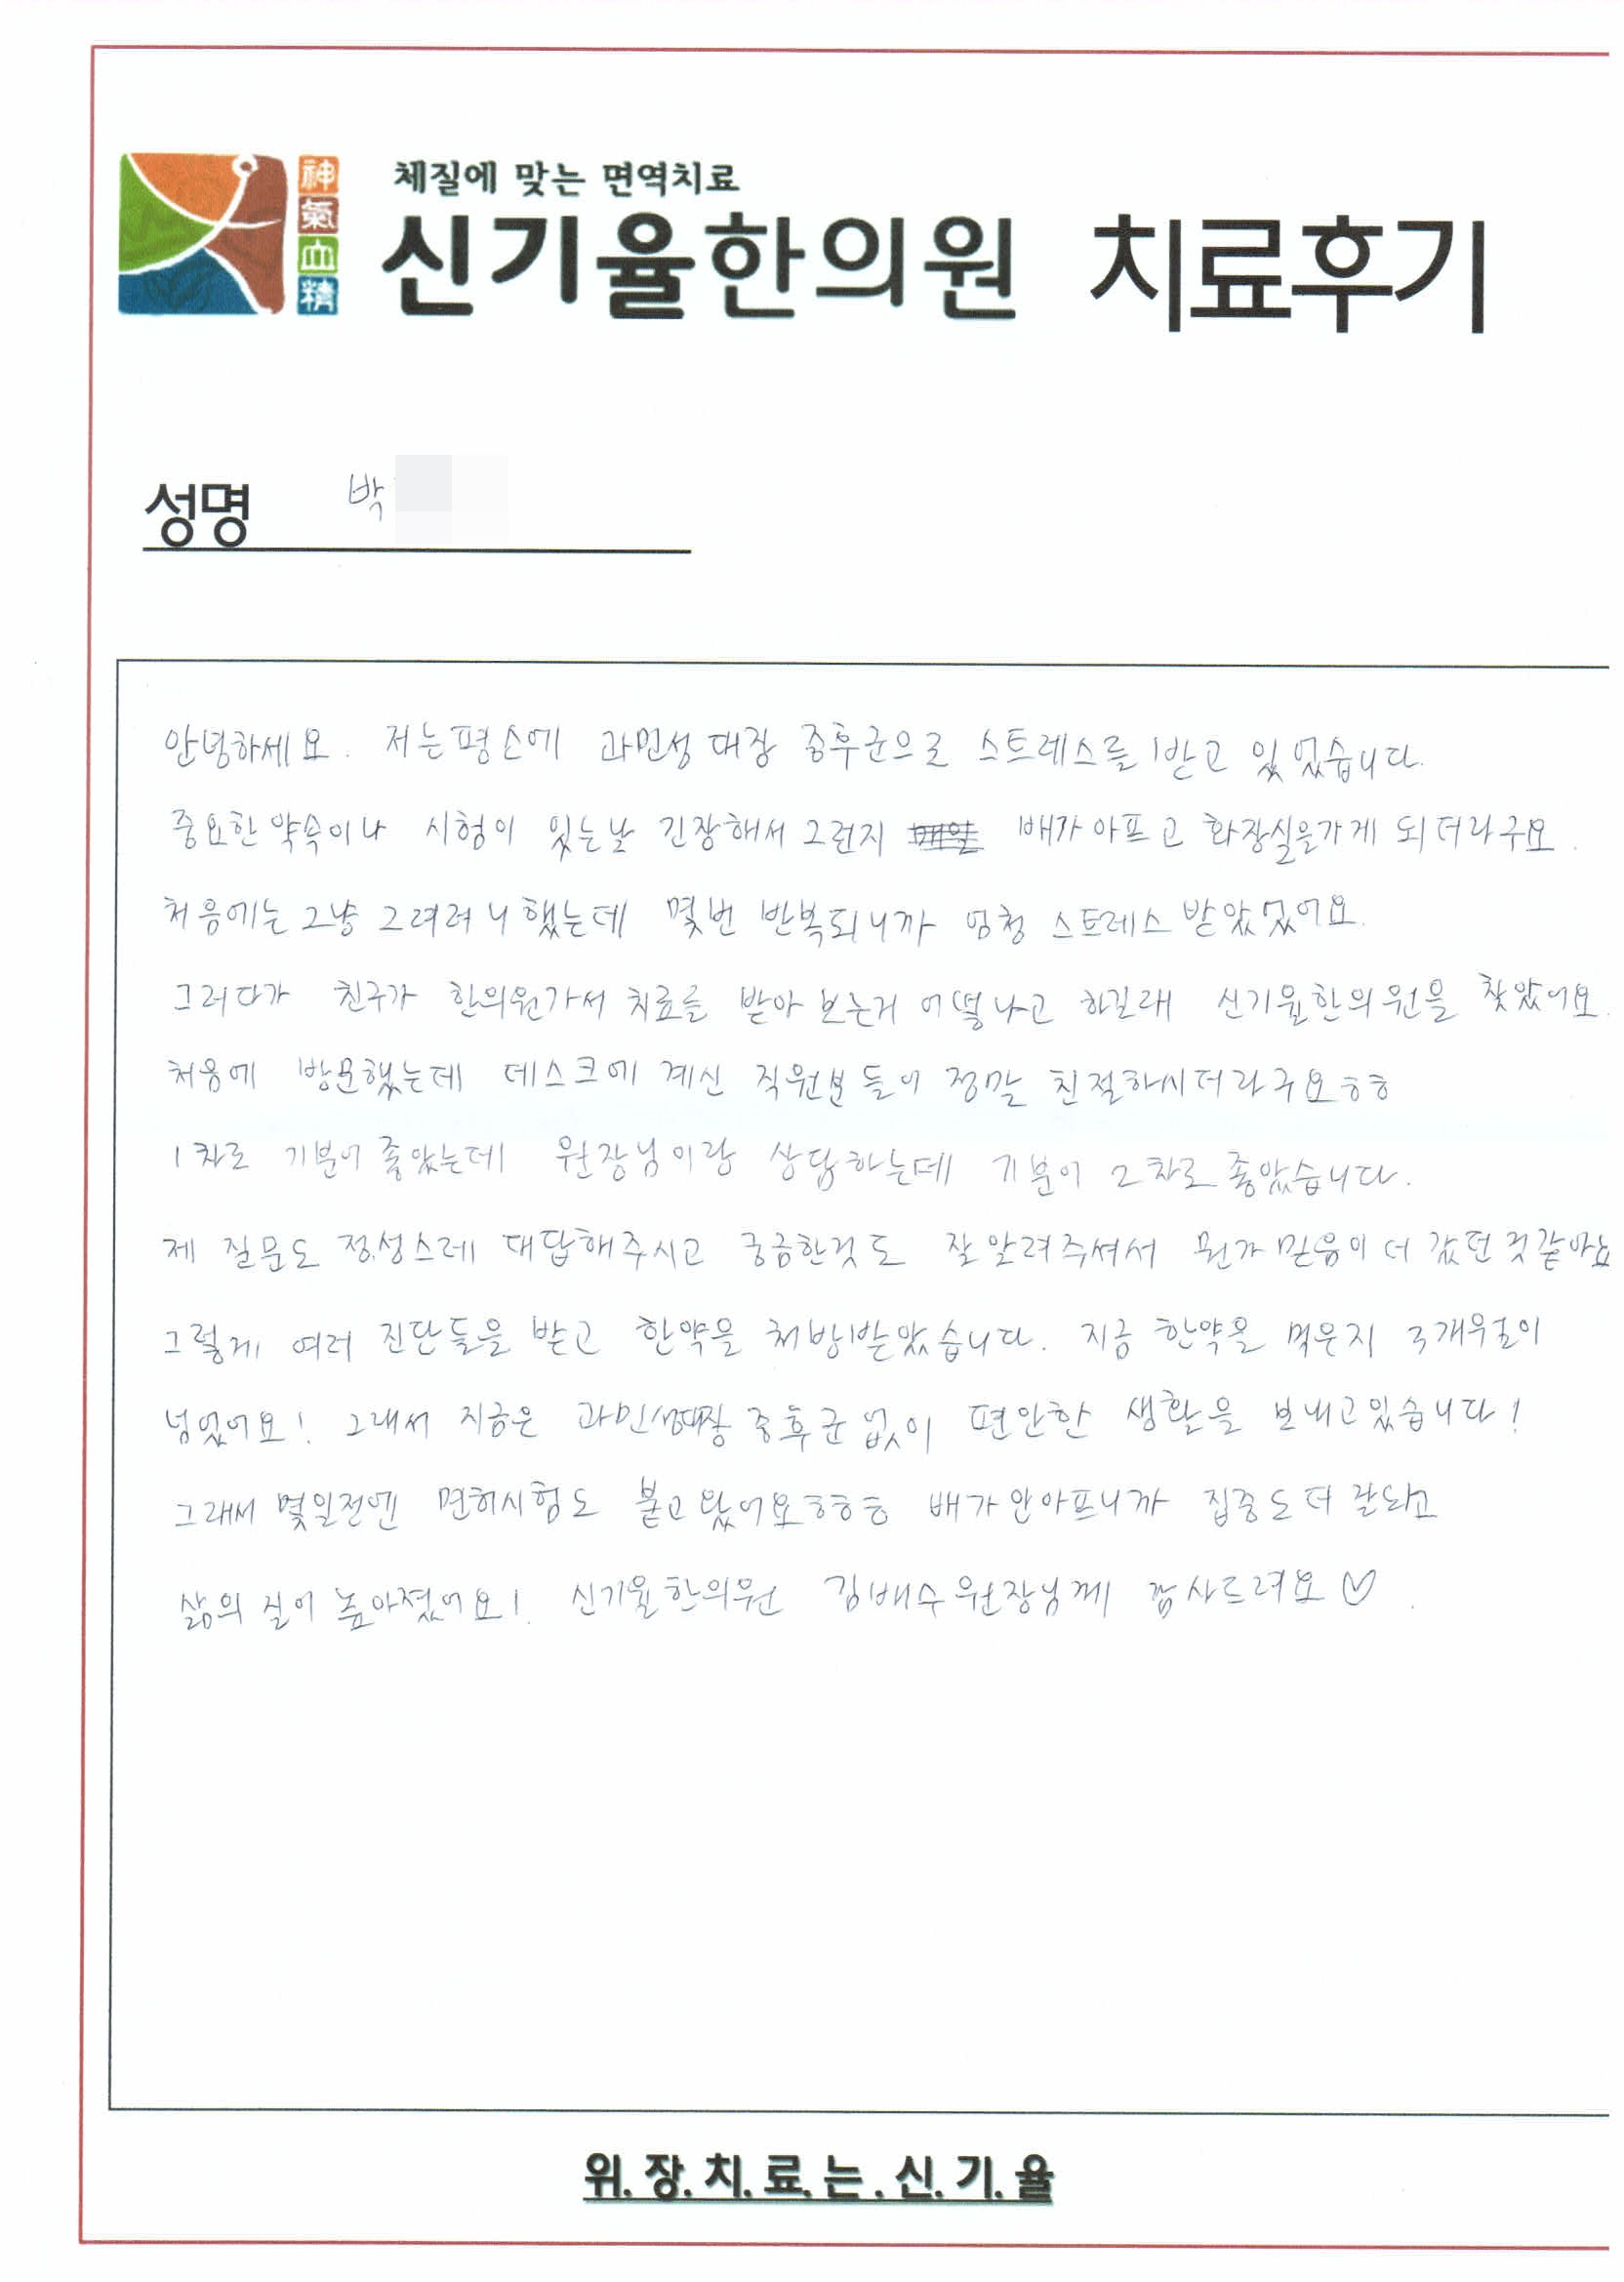 체질에 맞는 면역치료
神氣血精
신기율한의원 치료후기
성명 박
안녕하세요. 저는평소에 과민성대장 증후군으로 스트레스를 받고 있었습니다.
중요한약속이나 시험이 있는날 긴장해서그런지 배가아프고 화장실을가게 되더라구요.
처음에는 그냥 그려려니했는데 몇번 반복되니까 엄청 스트레스 받았었어요.
그러다가 친구가 한의원가서 치료를 받아 보는거 어떻냐고 하길래 신기율한의원을 찾았어요.
처음에 방문했는데 데스크에 계신 직원분들이 정말 친절하시더라구요ㅎㅎ
1차로 기분이좋았는데 원장님이랑 상담하는데 기분이 2차로좋았습니다.
제 질문도 정성스레 대답해주시고 궁금한것도 잘알려주셔서 뭔가 믿음이더 갔던것같아요
그렇게 여러 진단들을 받고 한약을 처방받았습니다. 지금 한약을 먹은지 3개월이
넘었어요! 그래서 지금은 과민성대장증후군없이 편안한 생활을 보내고있습니다!
그래서 몇일전엔 면허시험도 붙고왔어요ㅎㅎㅎ 배가안아프니까 집중도더잘되고
삶의 질이 높아졌어요! 신기율한의원 김배수원장님께 감사드려요♡.
위.장.치.료.는.신.기.율